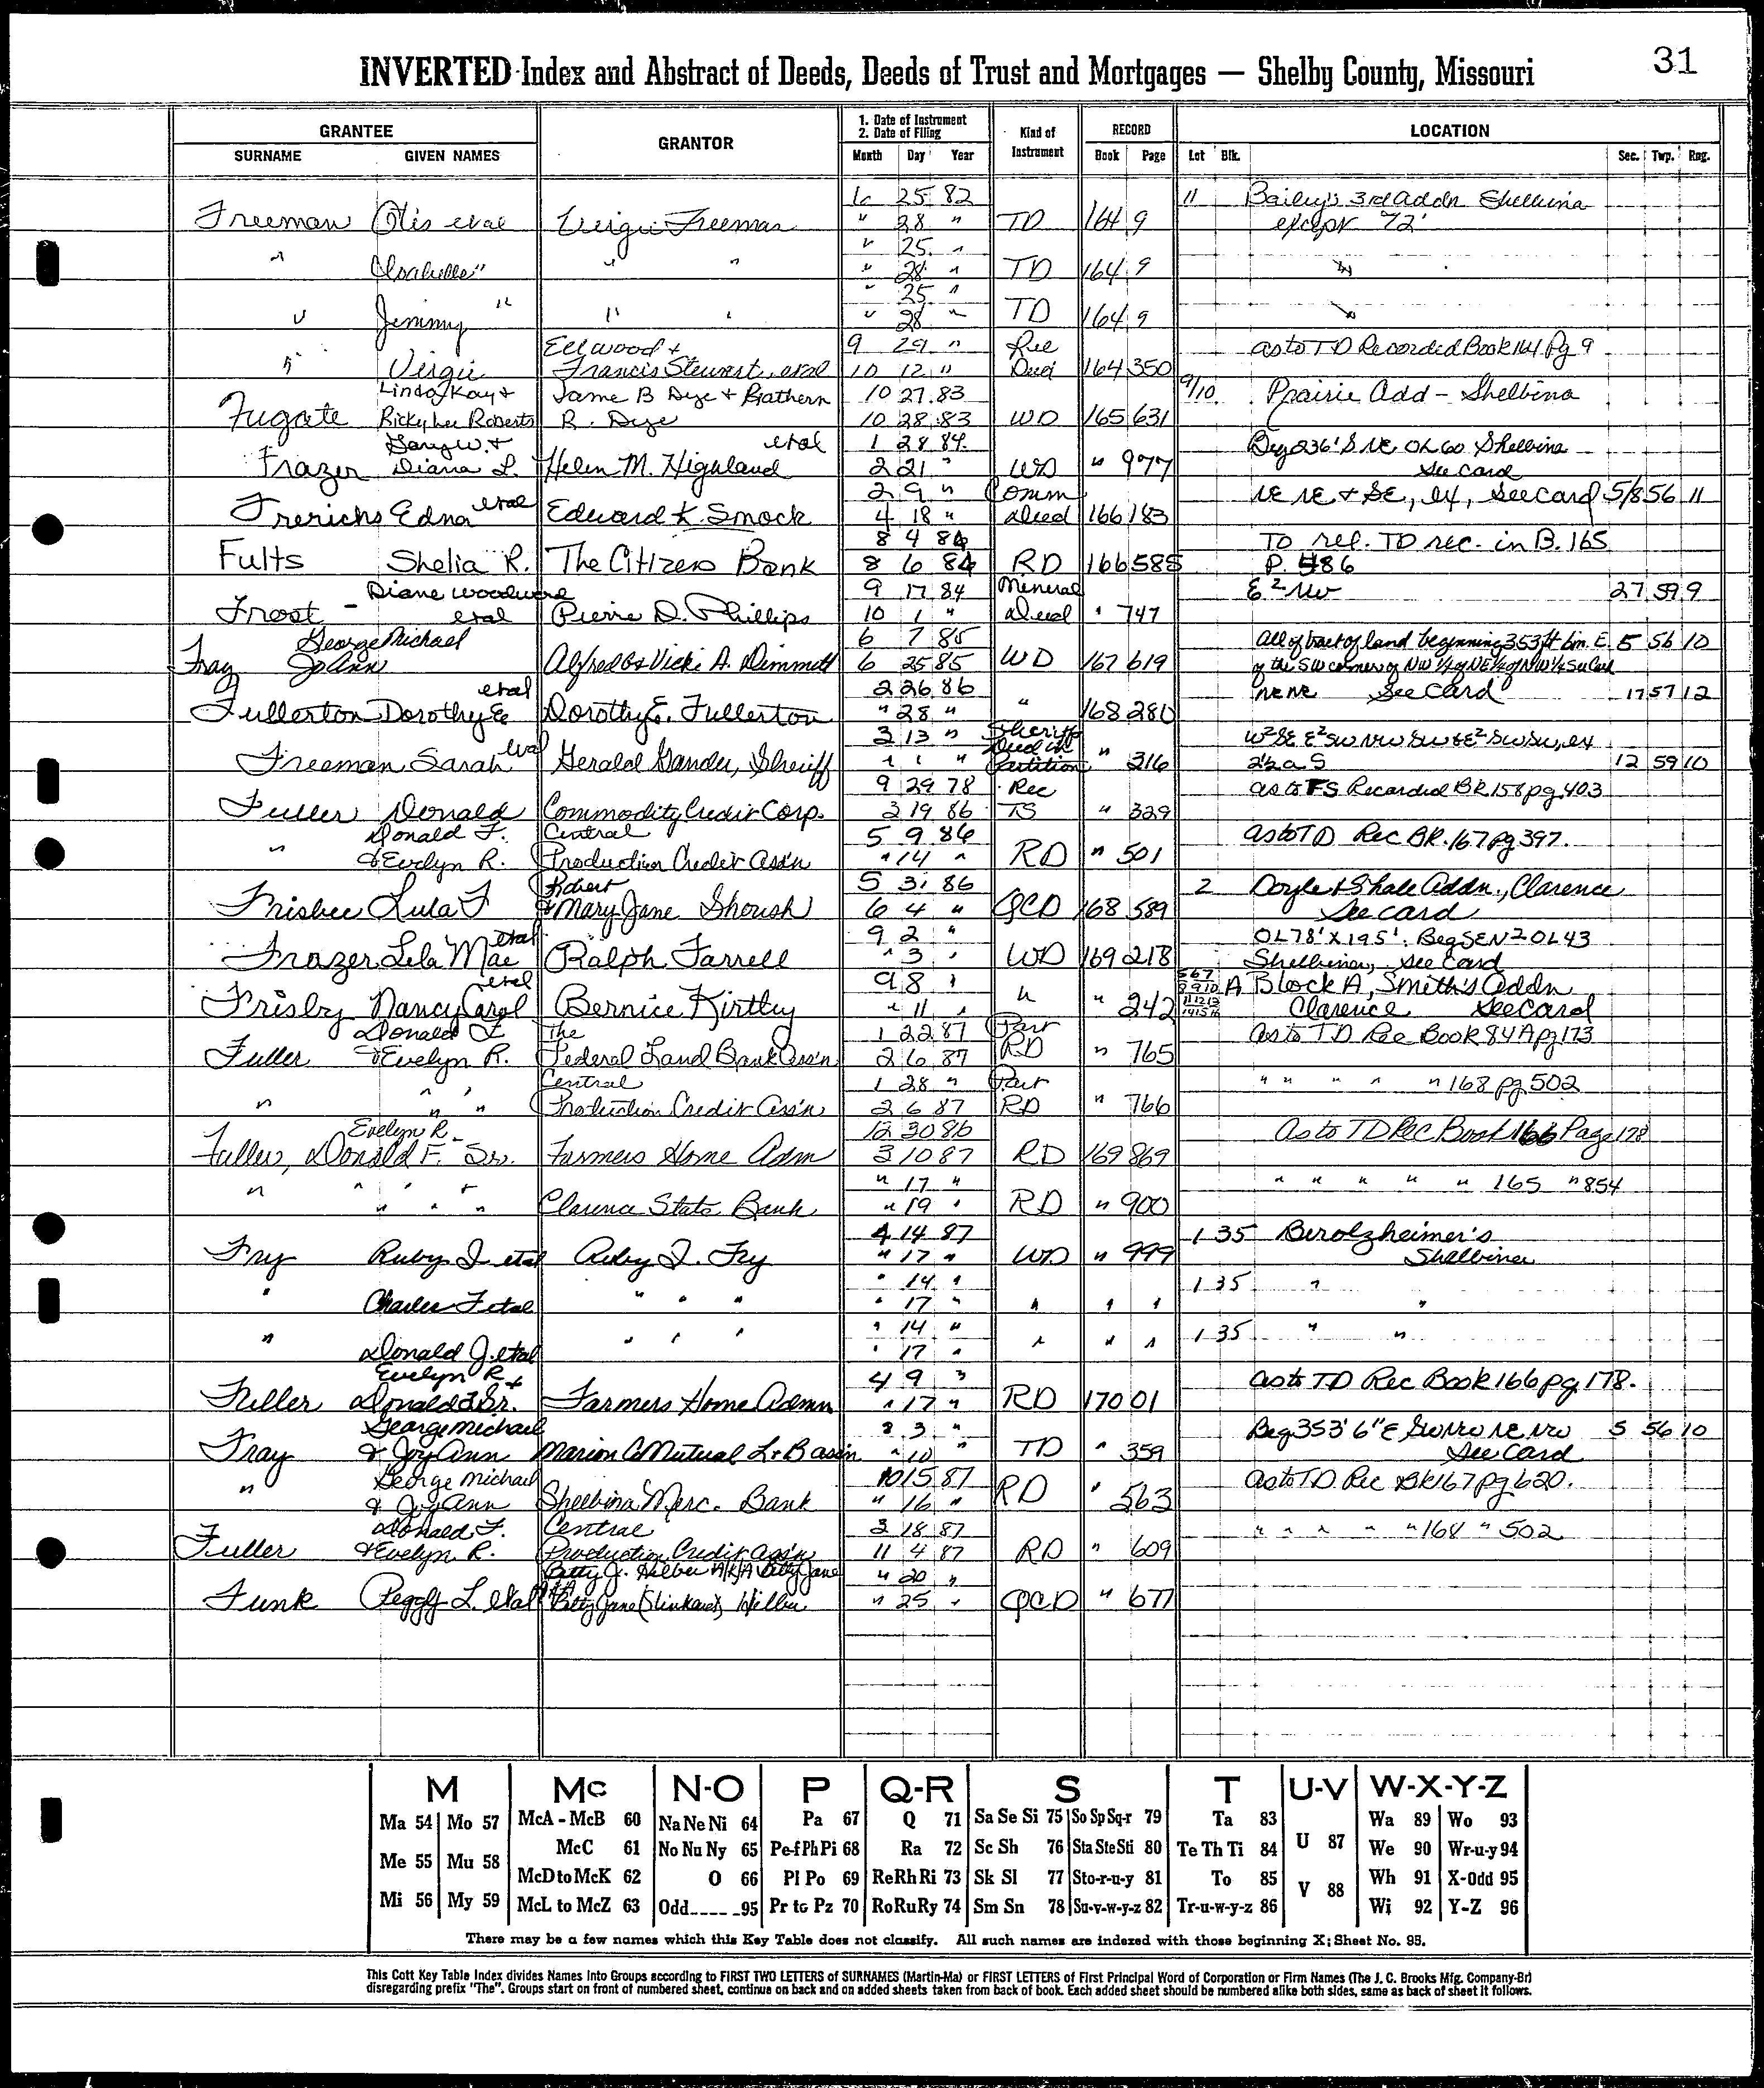 31
INVERTED Index and Abstract of Deeds, Deeds of Trust and Mortgages — Shelby County, Missouri
GRANTEE GRANTOR 1. Date of Instrument 2. Date of Filing Kind of Instrument RECORD LOCATION
SURNAME GIVEN NAMES Month Day Year Book Page Lot Blk. Sec. Twp. Rng.
6 25 82 11 Bailey's 3rd Addn Shelbina
Freeman Otis etal Virgie Freeman " 28 " TD 164 9 except 72'
" 25 "
" Isabelle " " " " 28 " TD 164 9 "
" 25 "
" Jimmy " " " " 28 " TD 164 9 "
Ellwood + 9 29 " Rec as to TD Recorded Book 164 Pg 9
" Virgie Francis Stewart, etal 10 12 " Deed 164 350
Linda Kay + Jame B Dye + Kathern 10 27 83 9/10 Prairie Add - Shelbina
Fugate Ricky Lee Roberts R. Dye 10 28 83 WD 165 631
Gary W. + etal 1 28 84 Beg 236' S NE OL 60 Shelbina
Frazer Diana L. Helen M. Highland 2 21 " WD " 977 See Card
etal 2 9 " Comm NE NE + SE, ex, See card 5/8 56 11
Frerichs Edna Edward K. Smock 4 18 " Deed 166 183
8 4 84 To rel. TD rec. in B. 165
Fults Shelia R. The Citizens Bank 8 6 84 RD 166 585 P. 486
Diane Woodward 9 17 84 Mineral E 2 NW 27 59 9
Frost - etal Pierre D. Phillips 10 1 " Deed " 747
George Michael 6 7 85 All of tract of land beginning 353 ft 6in. E. 5 56 10
Fray Jo Ann Alfred & Vicki A. Dimmitt 6 25 85 WD 167 619 of the SW corner of NW 1/4 of NE 1/4 of NW 1/4 See Card
etal 2 26 86 NE NE See Card 17 57 12
Fullerton Dorothy E. Dorothy E. Fullerton " 28 " " 168 280
etal 3 13 " Sheriff Deed in W2 SE E2 SW NW SW & E2 SW SW, ex
Freeman Sarah Gerald Gander, Sheriff " " " Partition " 316 2½ a S 12 59 10
9 29 78 Rec as to FS Recorded BK 158 pg. 403
Fuller Donald Commodity Credit Corp. 3 19 86 TS " 329
Donald F. Central 5 9 86 as to TD Rec BK. 167 pg 397.
" & Evelyn R. Production Credit Ass'n " 14 " RD " 501
Robert 5 31 86 2 Doyle & Shale Addn., Clarence
Frisbee Lula F & Mary Jane Shoush 6 4 " QCD 168 589 See card
etal 9 2 " OL 78' X 195'. Beg SE N 2 OL 43
Frazer Lela Mae Ralph Farrell " 3 " WD 169 218 Shelbina, See Card
etal 9 8 " 5 6 7 8 9 10 A Block A, Smith's Addn
Frisby Nancy Carol Bernice Kirtley " 11 " " " 242 11 12 13 14 15 16 Clarence See Card
Donald F. The 1 22 87 Part as to TD Rec Book 84A pg 173
Fuller & Evelyn R. Federal Land Bank Ass'n 2 6 87 RD " 765
" " Central 1 28 " Part " " " " " 168 pg 502
" " " Production Credit Ass'n 2 6 87 RD " 766
Evelyn R. 12 30 86 As to TD Rec Book 166 Page 178
Fuller, Donald F. Sr. Farmers Home Adm 3 10 87 RD 169 869
" " " + " 17 " " " " " " 165 " 854
" " " Clarence State Bank " 19 " RD " 900
4 14 87 1 35 Berolzheimer's
Fry Ruby I etal Ruby I. Fry " 17 " WD " 999 Shelbina
" 14 " 1 35 "
" Charles F etal " " " " 17 " " " " "
" 14 " 1 35 " "
" Donald J. etal " " " " 17 " " " "
Evelyn R + 4 9 " as to TD Rec Book 166 pg 178.
Fuller Donald F Sr. Farmers Home Admn " 17 " RD 170 01
George Michael 8 3 " Beg 353' 6" E SW NW NE NW 5 56 10
Fray & Joy Ann Marion Co Mutual L + B assn " 10 " TD " 359 See Card
George Michael 10 15 87 as to TD Rec BK 167 pg 620.
" & Joy Ann Shelbina Merc. Bank " 16 " RD " 563
Donald F. Central 3 18 87 " " " " " 168 " 502
Fuller & Evelyn R. Production Credit Ass'n 11 4 87 RD " 609
Betty J. Hilber A/K/A Betty Jane " 20 "
Funk Peggy L. etal A/K/A Betty Jane (Slinkard) Hilber " 25 " QCD " 677
M Mc N-O P Q-R S T U-V W-X-Y-Z
Ma 54 Mo 57 McA - McB 60 Na Ne Ni 64 Pa 67 Q 71 Sa Se Si 75 So Sp Sq-r 79 Ta 83 Wa 89 Wo 93
McC 61 No Nu Ny 65 Pe-f Ph Pi 68 Ra 72 Sc Sh 76 Sta Ste Sti 80 Te Th Ti 84 U 87 We 90 Wr-u-y 94
Me 55 Mu 58 McD to McK 62 O 66 Pl Po 69 Re Rh Ri 73 Sk Sl 77 Sto-r-u-y 81 To 85 Wh 91 X-Odd 95
Mi 56 My 59 McL to McZ 63 Odd 95 Pr to Pz 70 Ro Ru Ry 74 Sm Sn 78 Su-v-w-y-z 82 Tr-u-w-y-z 86 V 88 Wi 92 Y-Z 96
There may be a few names which this Key Table does not classify. All such names are indexed with those beginning X; Sheet No. 95.
This Cott Key Table Index divides Names into Groups according to FIRST TWO LETTERS of SURNAMES (Martin-Ma) or FIRST LETTERS of First Principal Word of Corporation or Firm Names (The J. C. Brooks Mfg. Company-Br)
disregarding prefix "The". Groups start on front of numbered sheet, continue on back and on added sheets taken from back of book. Each added sheet should be numbered alike both sides, same as back of sheet it follows.